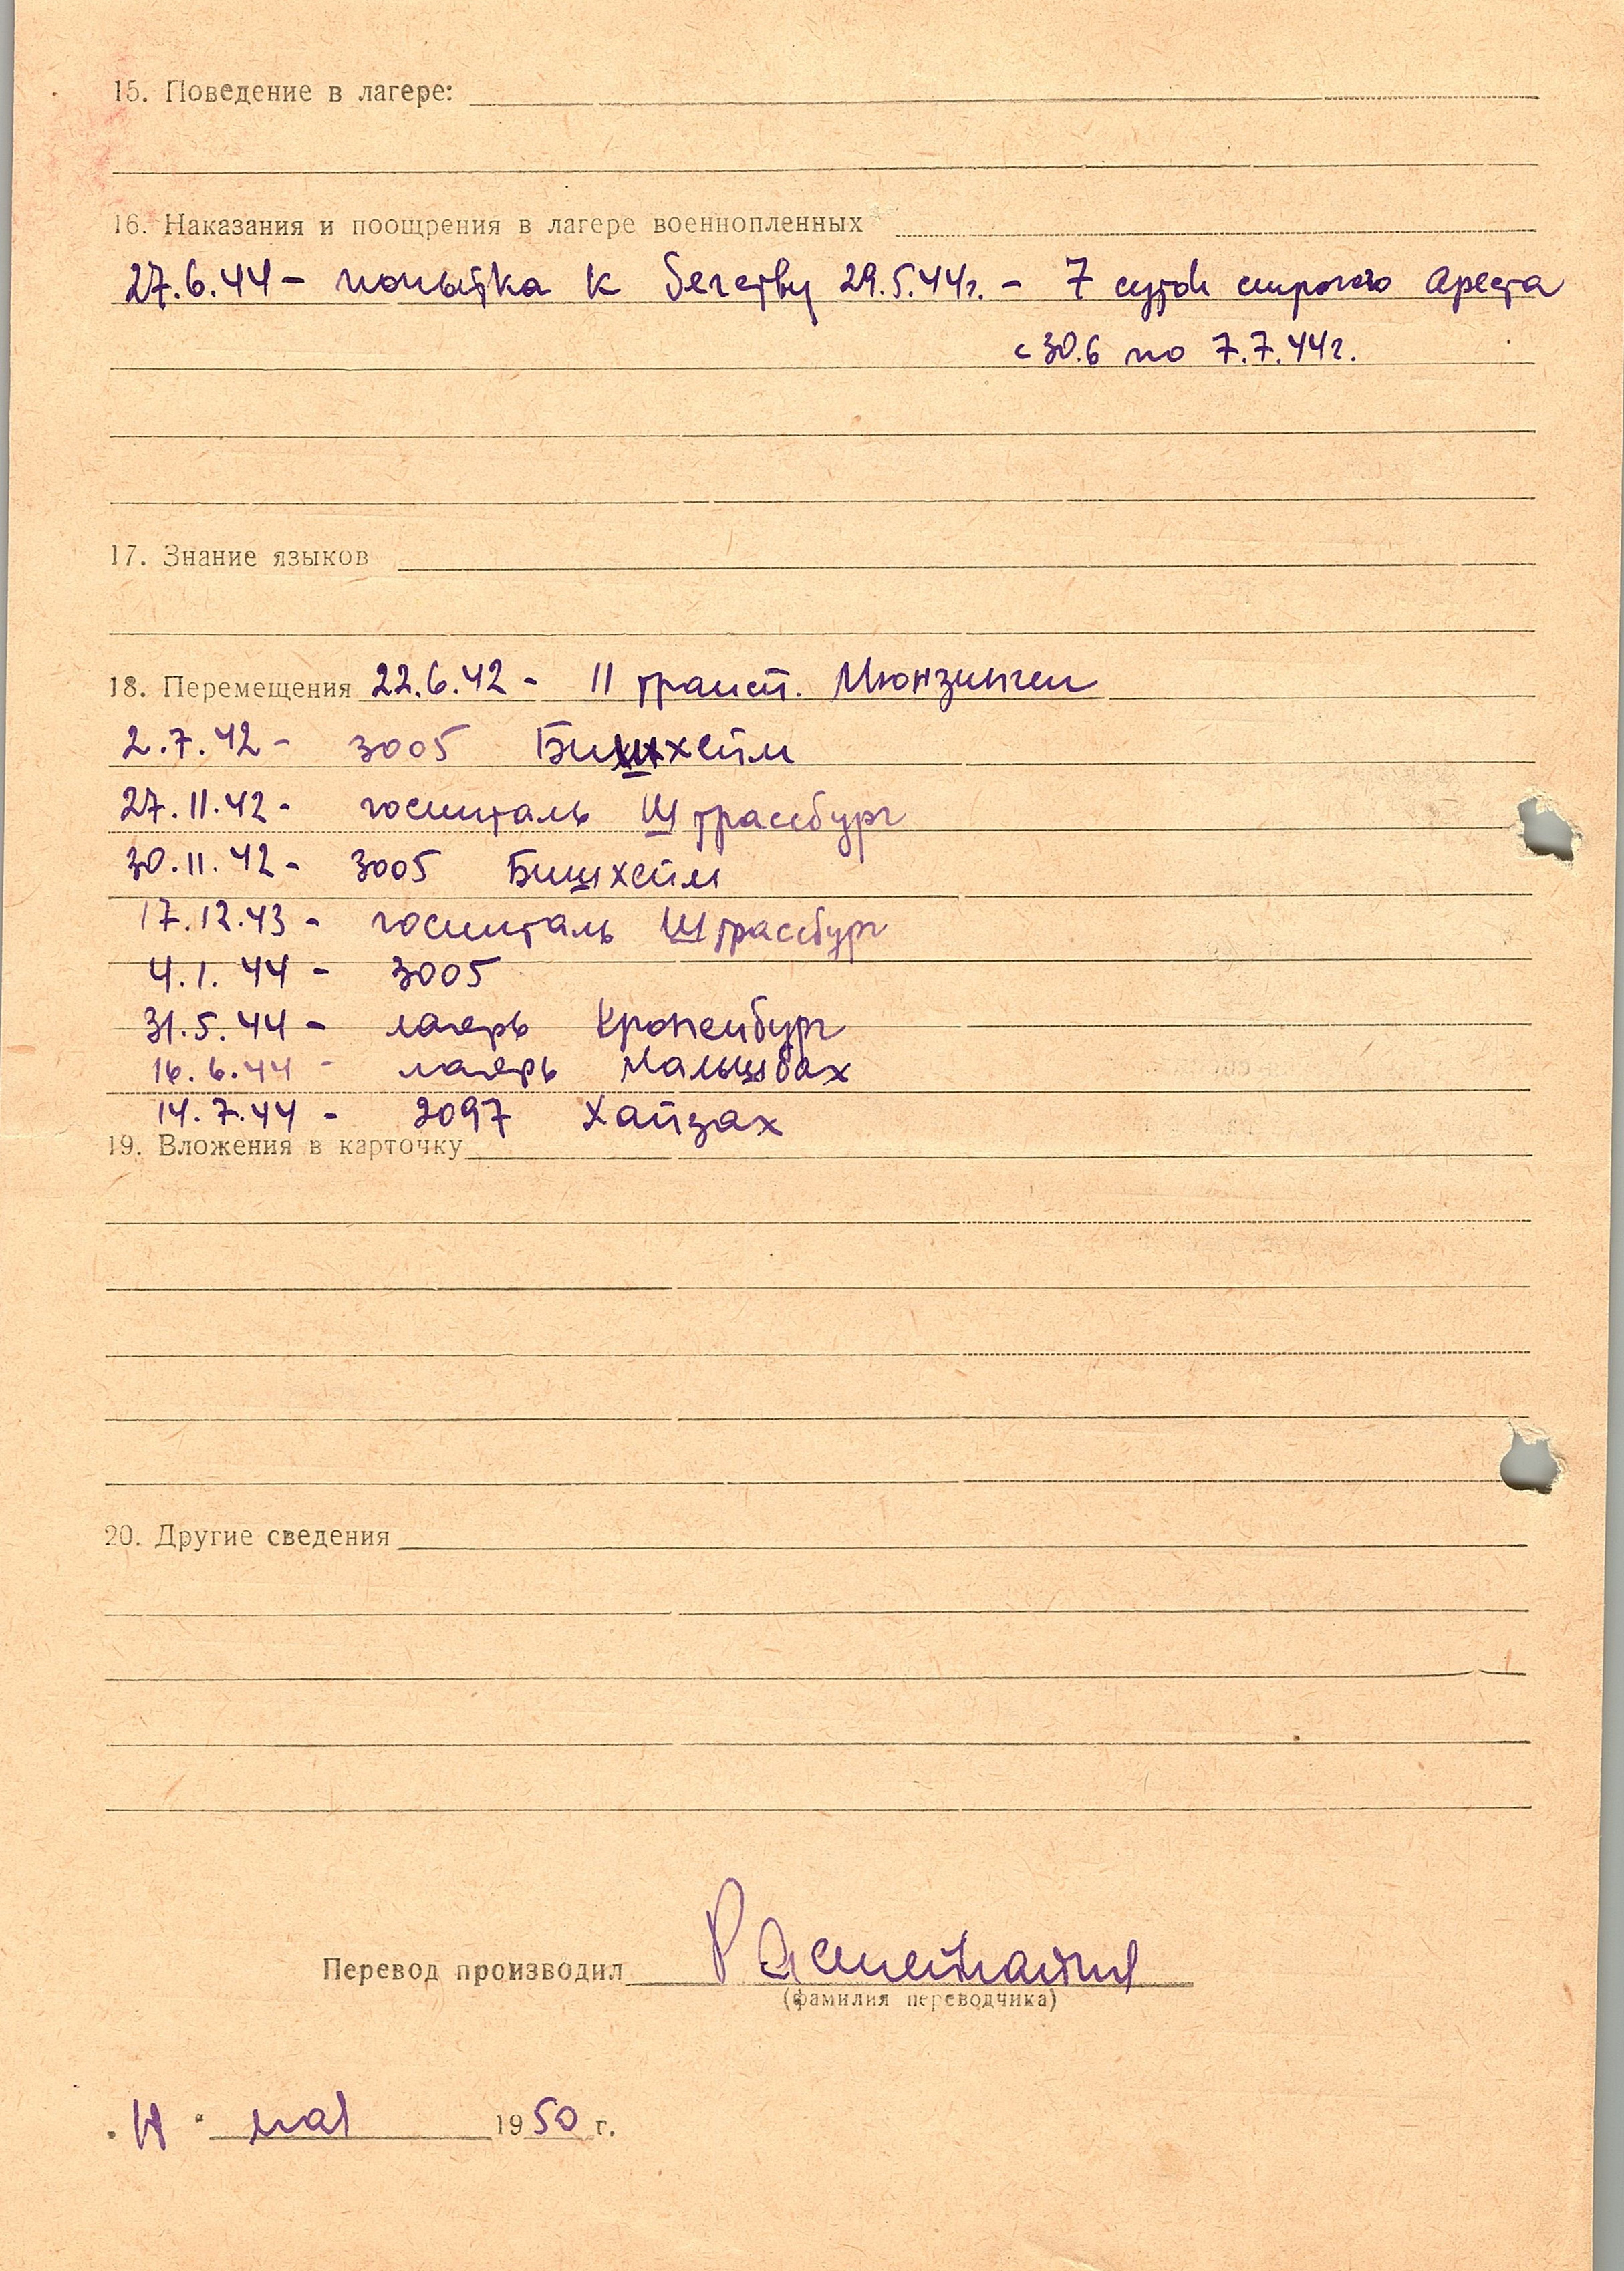 15. Поведение в лагере:
16. Наказания и поощрения в лагере военнопленных
27.6.44 - попытка к бегству 29.5.44г. - 7 суток строгого ареста
с 30.6 по 7.7.44г.
17. Знание языков
18. Перемещения 22.6.42 - II трансп. Мюнзинген
2.7.42 - 3005 Бишхейм
27.11.42 - госпиталь Штрассбург
30.11.42 - 3005 Бишхейм
17.12.43 - госпиталь Штрассбург
4.1.44 - 3005
31.5.44 - лагерь Кроненбург
16.6.44 - лагерь Мальшбах
14.7.44 - 2097 Хайзах
19. Вложения в карточку
20. Другие сведения
Перевод производил
(фамилия переводчика)
мая 1950 г.